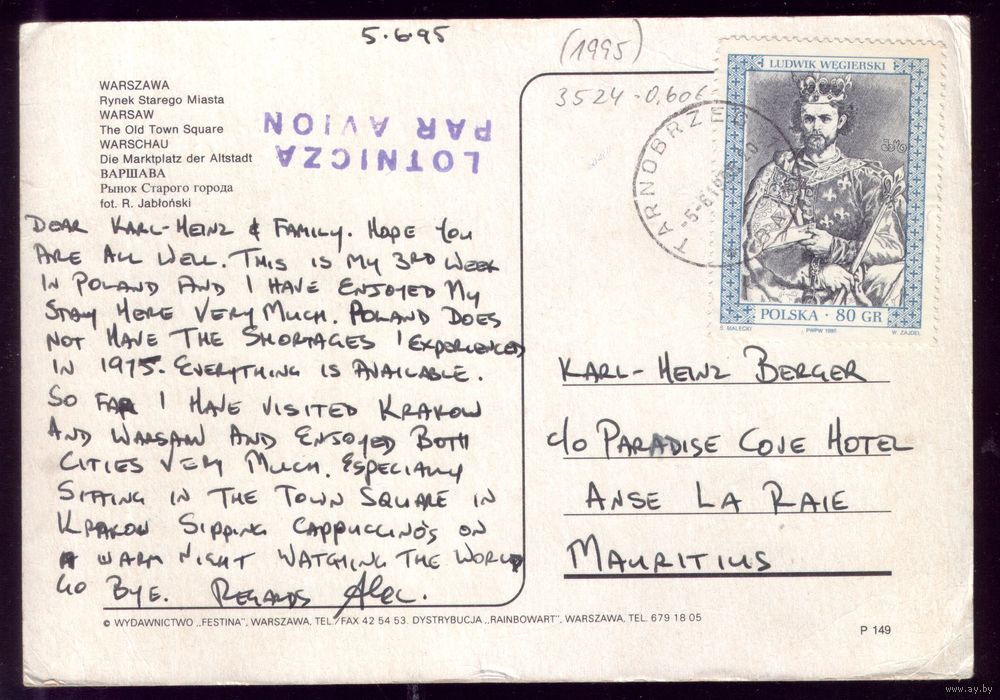 5.6.95
(1995)
3524-0,60€
WARSZAWA
Rynek Starego Miasta
WARSAW
The Old Town Square
WARSCHAU
Die Marktplatz der Altstadt
ВАРШАВА
Рынок Старого города
fot. R. Jabłoński
LOTNICZA
PAR AVION
DEAR KARL-HEINZ & FAMILY. HOPE YOU
ARE ALL WELL. THIS IS MY 3RD WEEK
IN POLAND AND I HAVE ENJOYED MY
STAY HERE VERY MUCH. POLAND DOES
NOT HAVE THE SHORTAGES I EXPERIENCED
IN 1975. EVERYTHING IS AVAILABLE.
SO FAR I HAVE VISITED KRAKOW
AND WARSAW AND ENJOYED BOTH
CITIES VERY MUCH. ESPECIALLY
SITTING IN THE TOWN SQUARE IN
KRAKOW SIPPING CAPPUCCINO'S ON
A WARM NIGHT WATCHING THE WORLD
GO BYE. REGARDS Alec.
TARNOBRZEG
LUDWIK WĘGIERSKI
POLSKA · 80 GR
S. MAŁECKI PWPW 1995 W. ZAJDEL
KARL-HEINZ BERGER
c/o PARADISE COVE HOTEL
ANSE LA RAIE
MAURITIUS
© WYDAWNICTWO „FESTINA", WARSZAWA, TEL./FAX 42 54 53. DYSTRYBUCJA „RAINBOWART", WARSZAWA, TEL. 679 18 05
P 149
www.ay.by